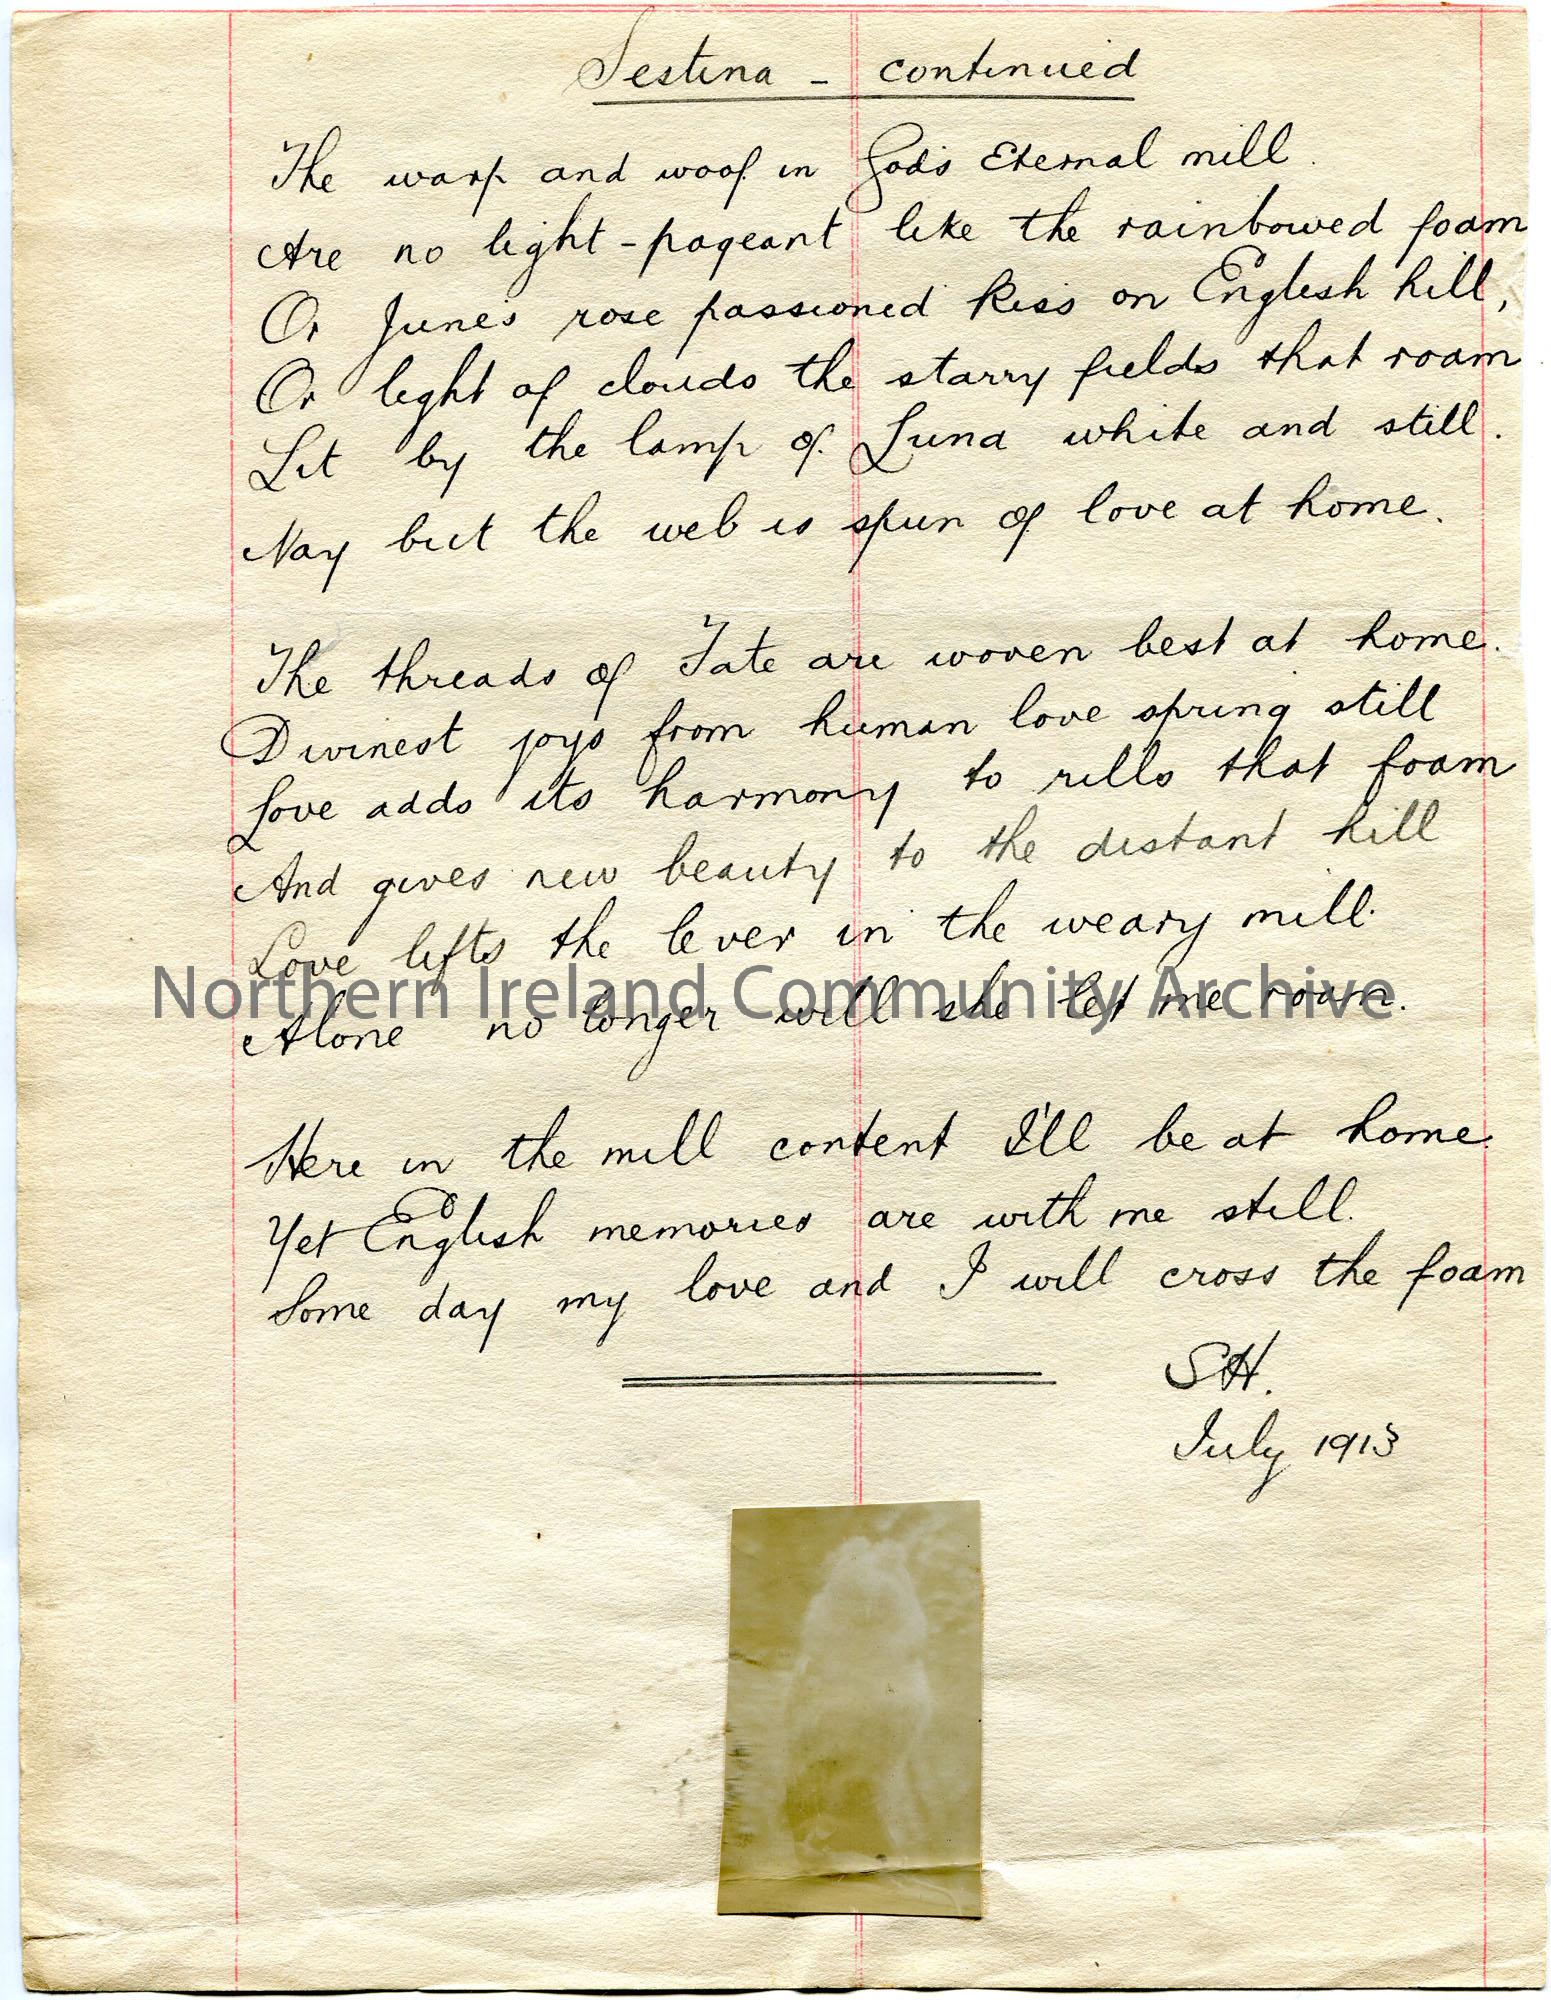 Sestina - continued
The warp and woof in God's Eternal mill.
Are no light-pageant like the rainbowed foam
Or June's rose passioned kiss on English hill,
Or light of clouds the starry fields that roam
Lit by the lamp of Luna white and still.
Nay but the web is spun of love at home.
The threads of Fate are woven best at home.
Divinest joys from human love spring still
Love adds its harmony to rills that foam
And gives new beauty to the distant hill
Love lifts the lever in the weary mill.
Northern Ireland Community Archive
Alone no longer will she let me roam.
Here in the mill content I'll be at home.
Yet English memories are with me still.
Some day my love and I will cross the foam
SH.
July 1913